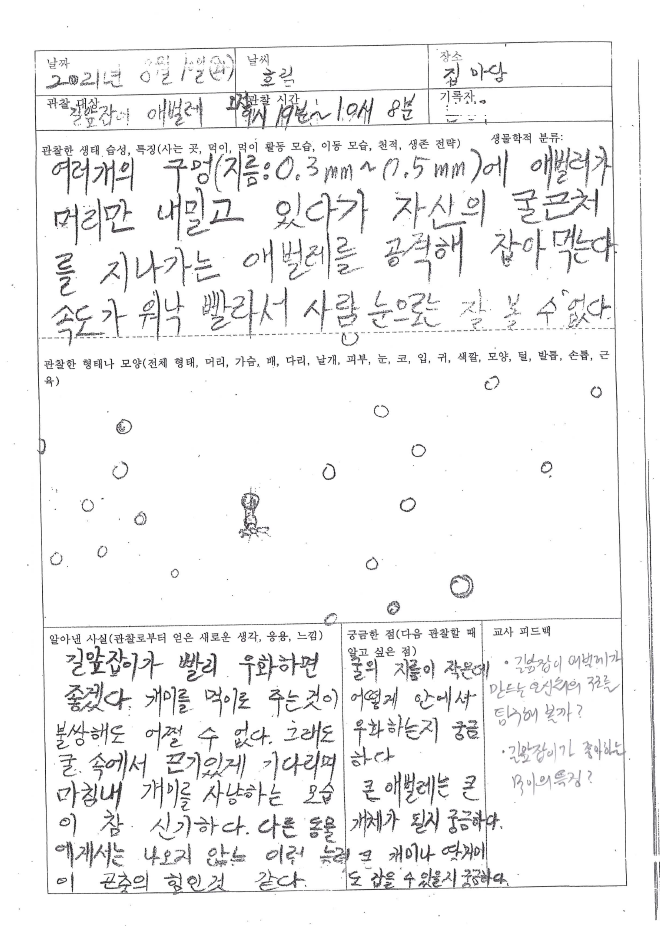 날짜
2021년 8월 1일(화)
날씨
흐림
장소
집 마당
관찰 대상
길앞잡이 애벌레
관찰 시간
19분~10시 8분
기록자
관찰한 생태 습성, 특징(사는 곳, 먹이, 먹이 활동 모습, 이동 모습, 천적, 생존 전략) 생물학적 분류:
여러개의 구멍(지름:0.3mm~0.5mm)에 애벌레가
머리만 내밀고 있다가 자신의 굴근처
를 지나가는 애벌레를 공격해 잡아먹는다
속도가 워낙 빨라서 사람 눈으로는 잘 볼 수 없다.
관찰한 형태나 모양(전체 형태, 머리, 가슴, 배, 다리, 날개, 피부, 눈, 코, 입, 귀, 색깔, 모양, 털, 발톱, 손톱, 근
육)
알아낸 사실(관찰로부터 얻은 새로운 생각, 응용, 느낌)
길앞잡이가 빨리 우화하면
좋겠다. 개미를 먹이로 주는것이
불쌍해도 어쩔 수 없다. 그래도
굴 속에서 끈기있게 기다리며
마침내 개미를 사냥하는 모습
이 참 신기하다. 다른 동물
에게서는 나오지 않는 이런
이 곤충의 힘인것 같다.
궁금한 점(다음 관찰할 때
알고 싶은 점)
굴의 지름이 작은데
어떻게 안에서
우화하는지 궁금
하다
큰 애벌레는 큰
개체가 될지 궁금하다.
큰 개미나
도 잡을 수 있을지 궁금하다.
교사 피드백
·길앞잡이 애벌레가
만드는 구조를
탐구해 볼까?
·길앞잡이가 좋아하는
먹이의 특징?